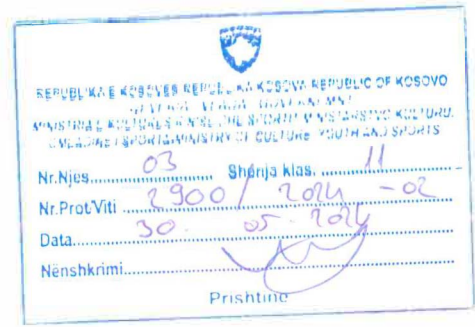 REPUBLIKA E KOSOVËS REPUBLIKA KOSOVA REPUBLIC OF KOSOVO
QEVERIA VLADA GOVERNMENT
MINISTRIA E KULTURËS RINISË DHE SPORTIT MINISTARSTVO KULTURU,
OMLADINE I SPORTA MINISTRY OF CULTURE YOUTH AND SPORTS
Nr.Njes. 03 Shënja klas. 11
Nr.Prot/Viti 2900 / 2024 -02
Data 30. 05. 2024
Nënshkrimi
Prishtinë